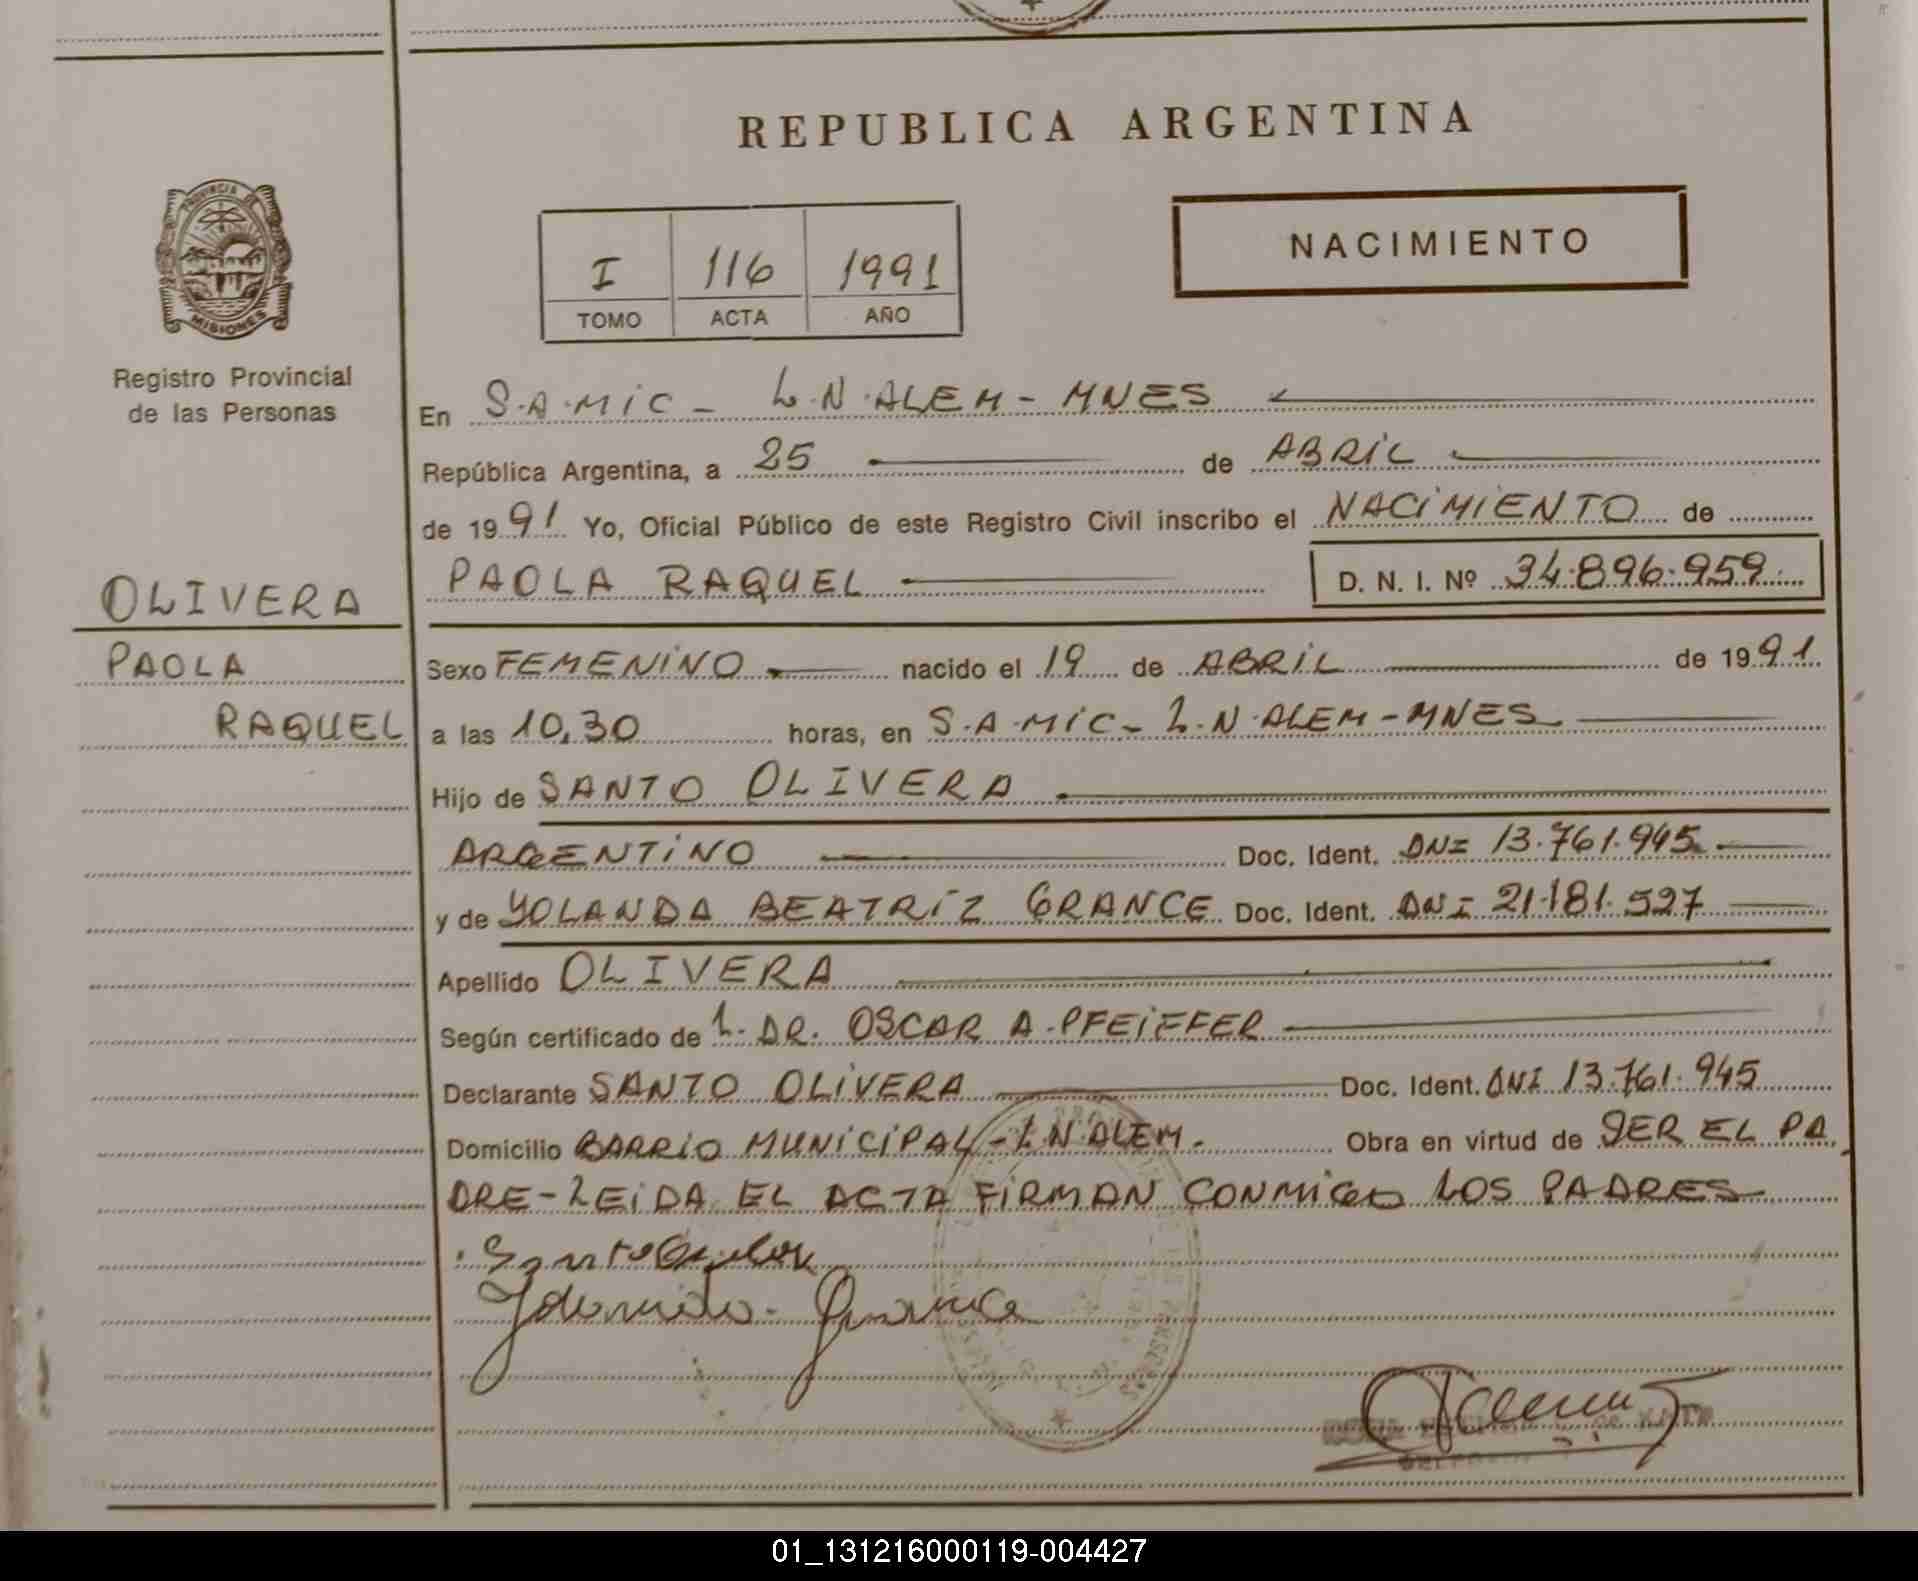 REPUBLICA ARGENTINA
PROVINCIA DE
MISIONES
Registro Provincial
de las Personas
I 116 1991
TOMO ACTA AÑO
NACIMIENTO
En S.A.MIC - L.N.ALEM - MNES
República Argentina, a 25 de ABRIL
de 1991 Yo, Oficial Público de este Registro Civil inscribo el NACIMIENTO de
PAOLA RAQUEL D. N. I. Nº 34.896.959
OLIVERA
PAOLA
RAQUEL
Sexo FEMENINO nacido el 19 de ABRIL de 1991
a las 10,30 horas, en S.A.MIC - L.N.ALEM - MNES
Hijo de SANTO OLIVERA
ARGENTINO Doc. Ident. DNI 13.761.945
y de YOLANDA BEATRIZ GRANCE Doc. Ident. DNI 21.181.527
Apellido OLIVERA
Según certificado de L. DR. OSCAR A. PFEIFFER
Declarante SANTO OLIVERA Doc. Ident. DNI 13.761.945
Domicilio BARRIO MUNICIPAL - L.N ALEM. Obra en virtud de SER EL PA
DRE - LEIDA EL ACTA FIRMAN CONMIGO LOS PADRES
01_131216000119-004427